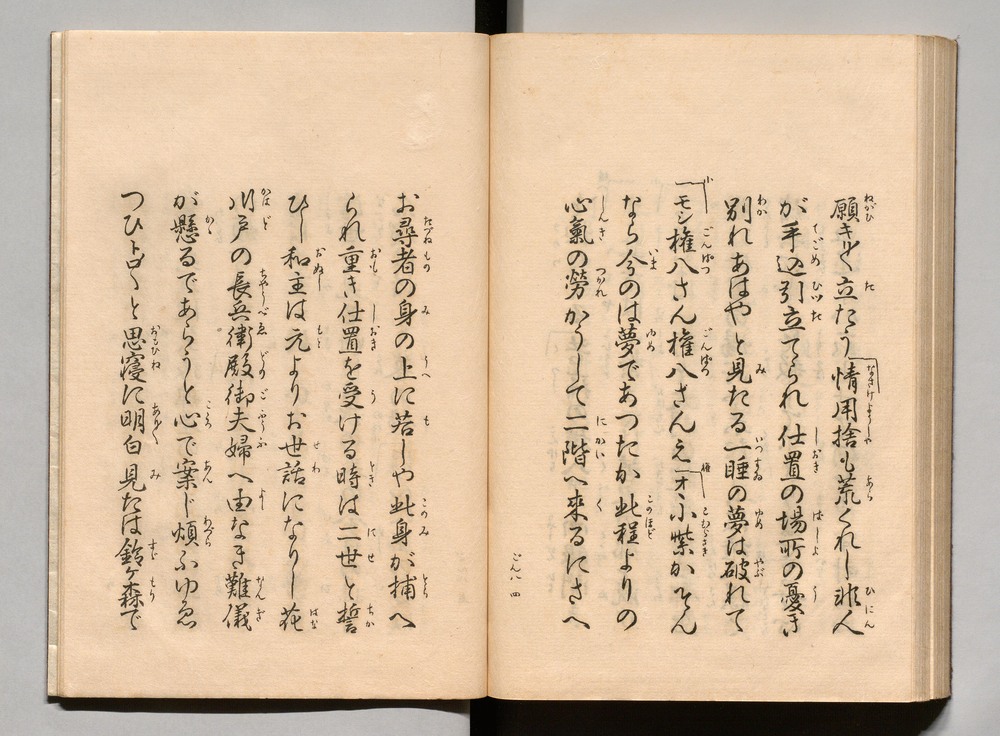 願キリ〱立たう「情用捨も荒くれし非人
が手込引立てられ仕置の場所の憂き
別れあはやと見たる一睡の夢は破れて
小「モシ権八さん権八さんえ権「オヽ小紫かそん
なら今のは夢であつたか此程よりの
心氣の勞かうして二階へ来るにさへ
ごん八 四
お尋者の身の上に若しや此身が捕へ
られ重き仕置を受ける時は二世と誓
ひし和主は元よりお世話になりし花
川戸の長兵衛殿御夫婦へ由なき難儀
が懸るであらうと心で案じ煩ふゆゑ
つひトロ〱と思寝に明白見たは鈴ヶ森で